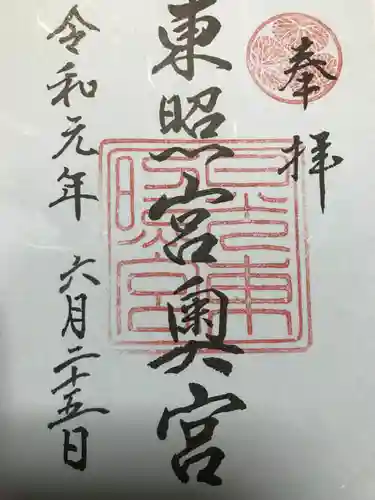 奉拝
東照宮奥宮
令和元年 六月二十五日
日光東照宮